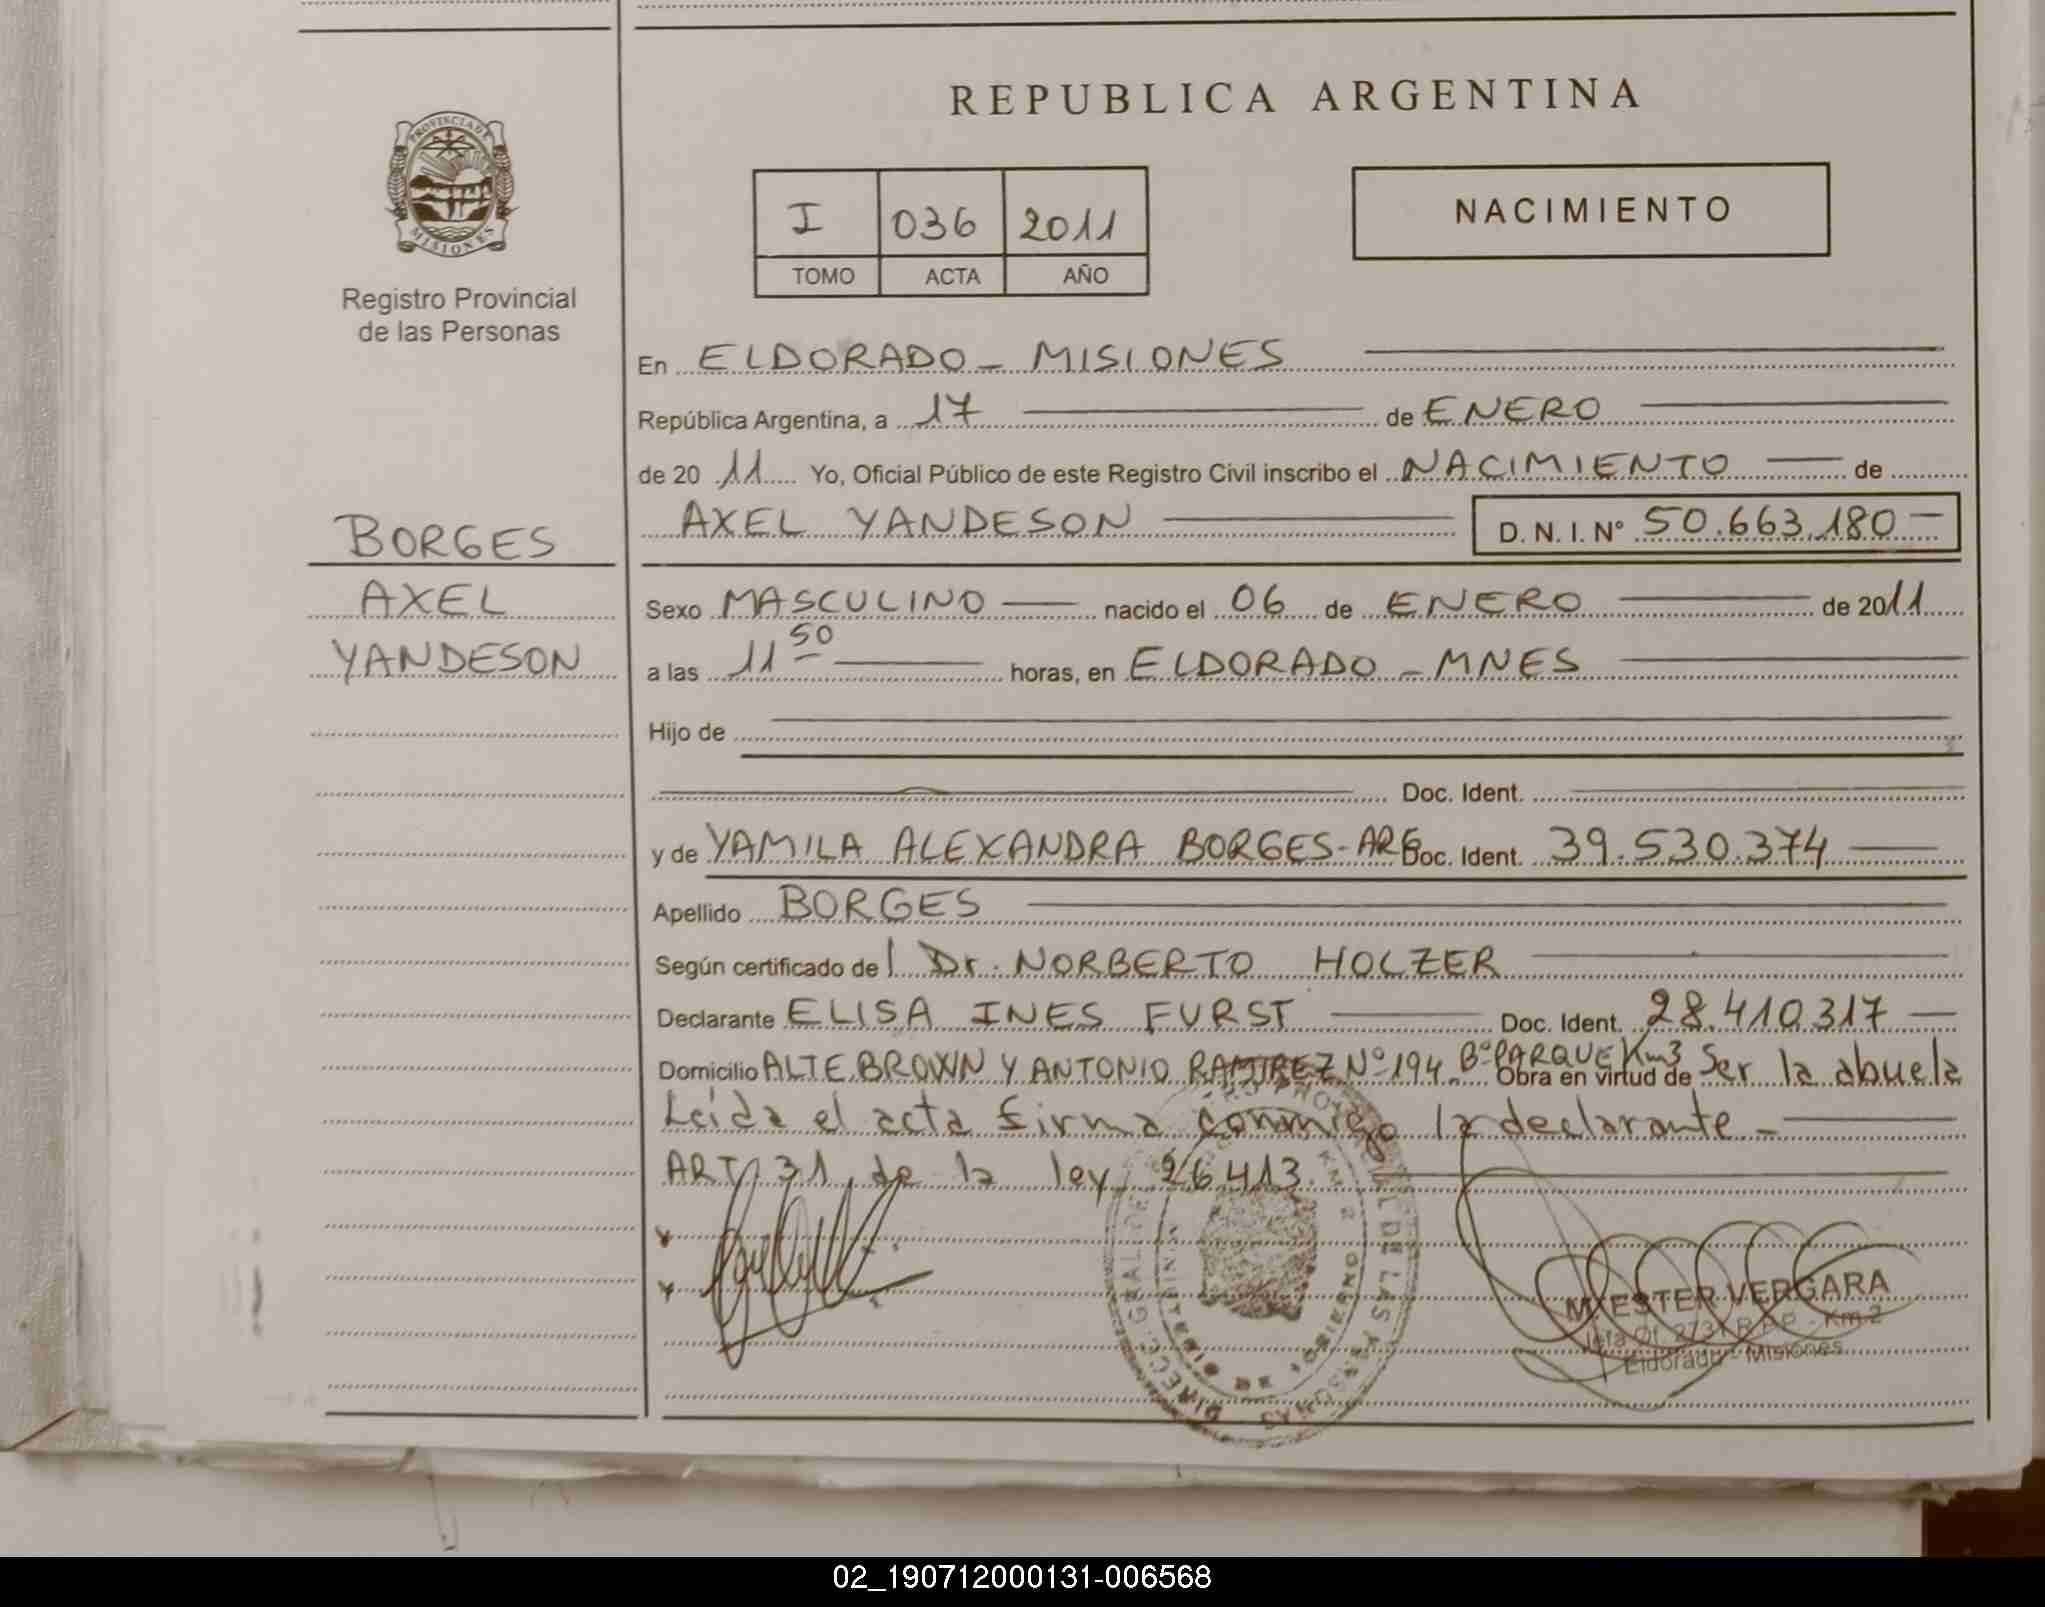 REPUBLICA ARGENTINA
PROVINCIA DE MISIONES
Registro Provincial
de las Personas
I 036 2011
TOMO ACTA AÑO
NACIMIENTO
En ELDORADO - MISIONES
República Argentina, a 17 de ENERO
de 20 11 Yo, Oficial Público de este Registro Civil inscribo el NACIMIENTO de
AXEL YANDESON D. N. I. N° 50.663.180
BORGES
AXEL
YANDESON
Sexo MASCULINO nacido el 06 de ENERO de 2011
a las 11 50 horas, en ELDORADO - MNES
Hijo de
Doc. Ident.
y de YAMILA ALEXANDRA BORGES - ARG Doc. Ident. 39.530.374
Apellido BORGES
Según certificado de l Dr. NORBERTO HOLZER
Declarante ELISA INES FURST Doc. Ident. 28.410.317
Domicilio ALTE BROWN Y ANTONIO RAMIREZ N° 194 B° PARQUE Km3 Obra en virtud de Ser la abuela
Leída el acta firma conmigo la declarante -
ART 31 de la ley 26.413.
M. ESTER VERGARA
Jefa Of. 2731 R.P.P. - Km. 2
Eldorado - Misiones
02_190712000131-006568